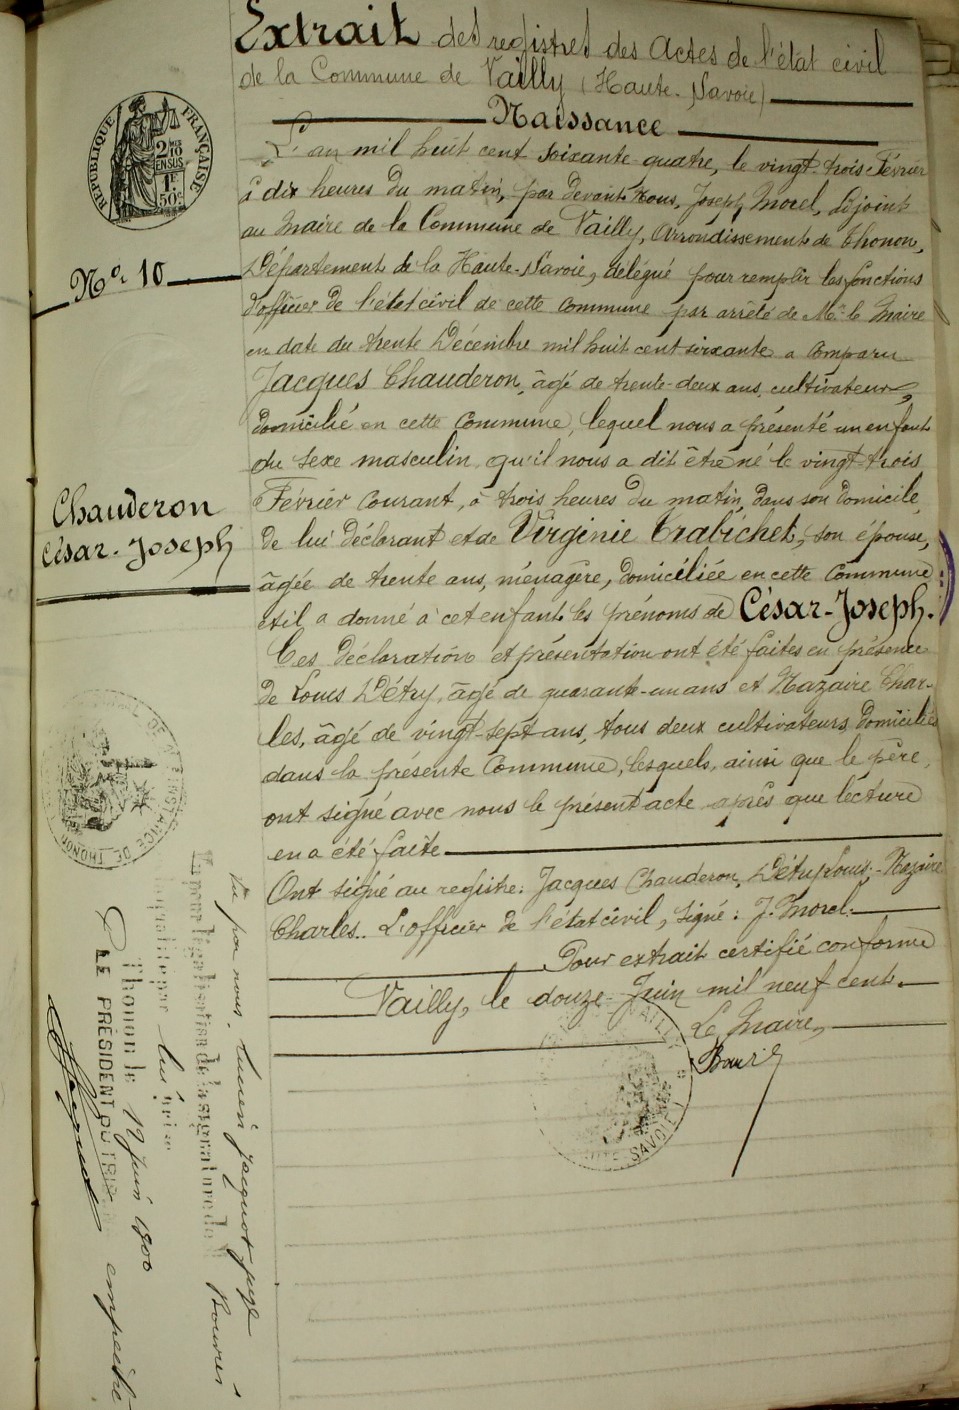 Extrait des registres des Actes de l'état civil
de la Commune de Vailly (Haute-Savoie)
Naissance
RÉPUBLIQUE FRANÇAISE
2/10
EN SUS
1F.
50c
N° 10
L'an mil huit cent soixante-quatre, le vingt trois Février
à dix heures du matin, par devant Nous, Joseph Morel, Adjoint
au Maire de la Commune de Vailly, Arrondissement de Thonon,
Département de la Haute-Savoie, délégué pour remplir les fonctions
d'officier de l'état civil de cette Commune par arrêté de Mr le Maire
en date du trente Décembre mil huit cent soixante a Comparu
Jacques Chauderon, âgé de trente-deux ans, cultivateur,
domicilié en cette Commune, lequel nous a présenté un enfant
du sexe masculin qu'il nous a dit être né le vingt-trois
Février Courant, à trois heures du matin, dans son domicile,
de lui déclarant et de Virginie Trabichet, son épouse,
âgée de trente ans, ménagère, domiciliée en cette Commune,
et il a donné à cet enfant les prénoms de César-Joseph.
Chauderon
César-Joseph
Ces déclaration et présentation ont été faites en présence
de Louis Détry, âgé de quarante-un ans et Nazaire Char-
les, âgé de vingt-sept ans, tous deux cultivateurs, domiciliés
dans la présente Commune, lesquels, ainsi que le père,
ont signé avec nous le présent acte après que lecture
en a été faite
Ont signé au registre: Jacques Chauderon, Détry Louis, Nazaire
Charles. L'officier de l'état civil, signé: J. Morel.
Pour extrait certifié conforme
Vailly, le douze Juin mil neuf cent.
Le Maire,
VAILLY
SAVOIE
INSTANCE DE THONON
Vu par nous, Lucien Jacquot juge
Vu pour légalisation de la signature de M
Thonon le 19 Juin 1900
LE PRÉSIDENT DU empêché